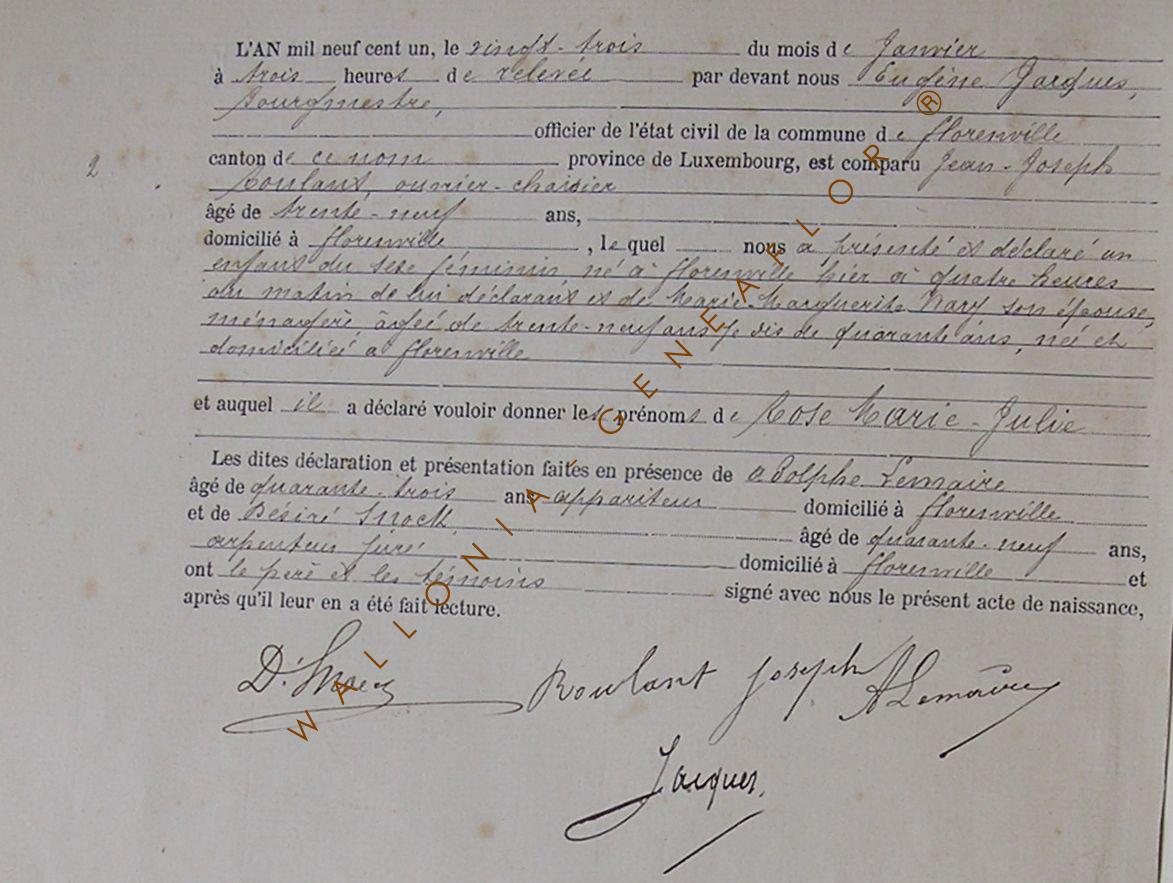 L'AN mil neuf cent un, le vingt-trois du mois de Janvier
à trois heures de relevée par devant nous Eugène Jacques,
Bourgmestre,
officier de l'état civil de la commune de florenville
2
canton de ce nom province de Luxembourg, est comparu Jean-Joseph
Roulant, ouvrier-
âgé de trente-neuf ans,
domicilié à florenville, lequel nous a présenté et déclaré un
enfant du sexe féminin né à florenville hier à quatre heures
du matin de lui déclarant et de Marie-Marguerite son épouse,
ménagère, âgée de trente-neuf ans je dis de quarante ans, née et
domiciliée à florenville
et auquel il a déclaré vouloir donner les prénoms de Rose Marie-Julie
Les dites déclaration et présentation faites en présence de Adolphe Lemaire
âgé de quarante-trois ans appariteur domicilié à florenville
et de Désiré Snock âgé de quarante-neuf ans,
arpenteur juré domicilié à florenville et
ont le père et les témoins signé avec nous le présent acte de naissance,
après qu'il leur en a été fait lecture.
D. Snock Roulant Joseph A Lemaire
Jacques
WALLONIA-GENEAFLOR®